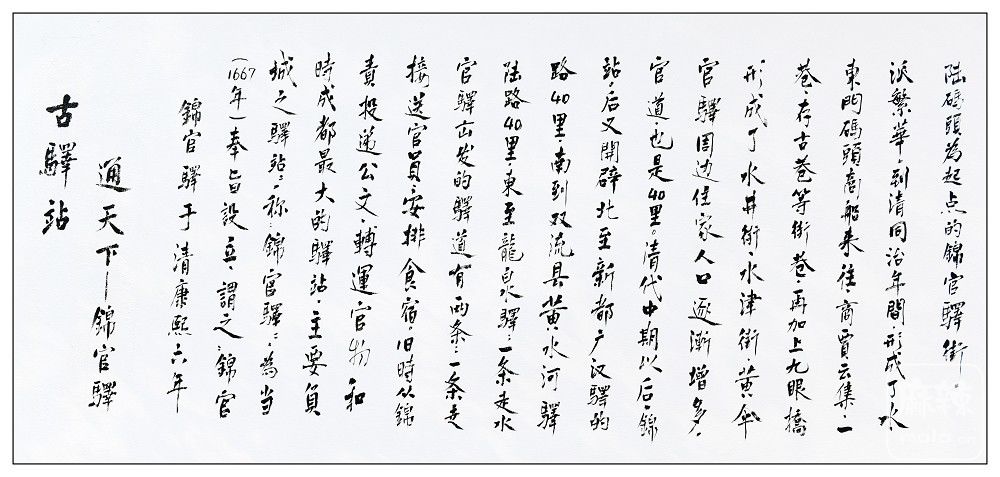 古驛站
通天下—錦官驛
錦官驛于清康熙六年
(1667年)奉旨設立,謂之,錦官
城之驛站,称錦官驛,為当
時成都最大的驛站,主要負
責投遞公文,轉運官物和
接送官員,安排食宿,旧時从錦
官驛出发的驛道有两条,一条走
陆路40里,東至龍泉驛,一条走水
路40里,南到双流县黄水河驛
站,后又開辟北至新都广汉驛的
官道,也是40里。清代中期以后,錦
官驛周边住家人口逐漸增多,
形成了水井街,水津街,黄伞
巷,存古巷等街巷,再加上九眼橋
東門碼頭商船来往,商賈云集,一
派繁華,到清同治年間形成了水
陆碼頭為起点的錦官驛街。
麻辣
mala.cn